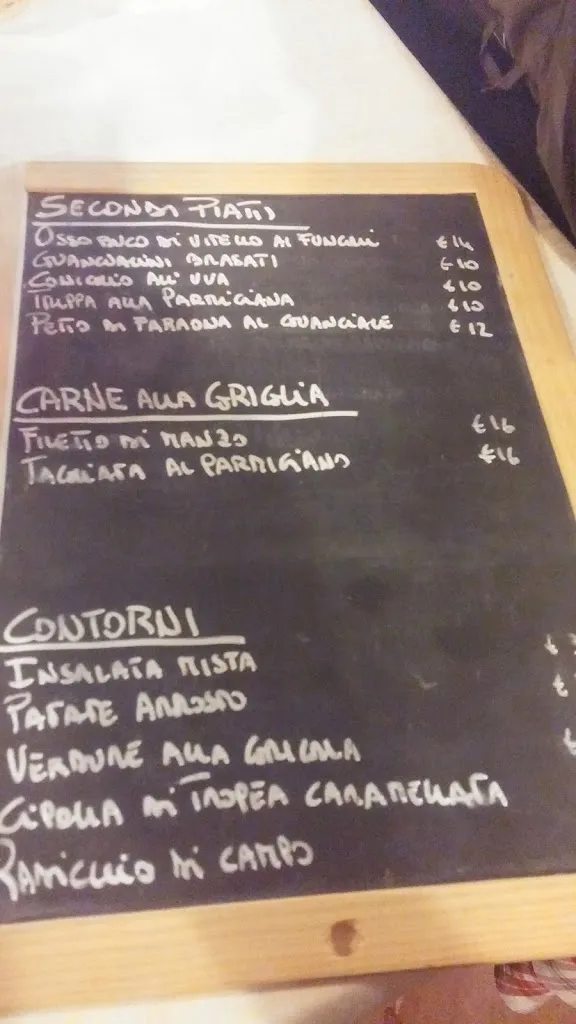 SECONDI PIATTI
OSSO BUCO DI VITELLO AI FUNGHI €14
GUANCIALINI BRASATI €10
CONIGLIO ALL' UVA €10
TRIPPA ALLA PARMIGIANA €10
PETTO DI FARAONA AL GUANCIALE €12
CARNE ALLA GRIGLIA
FILETTO DI MANZO €16
TAGLIATA AL PARMIGIANO €16
CONTORNI
INSALATA MISTA €
PATATE ARROSTO €
VERDURE ALLA GRIGLIA €
CIPOLLA DI TROPEA CARAMELLATA
RADICCHIO DI CAMPO